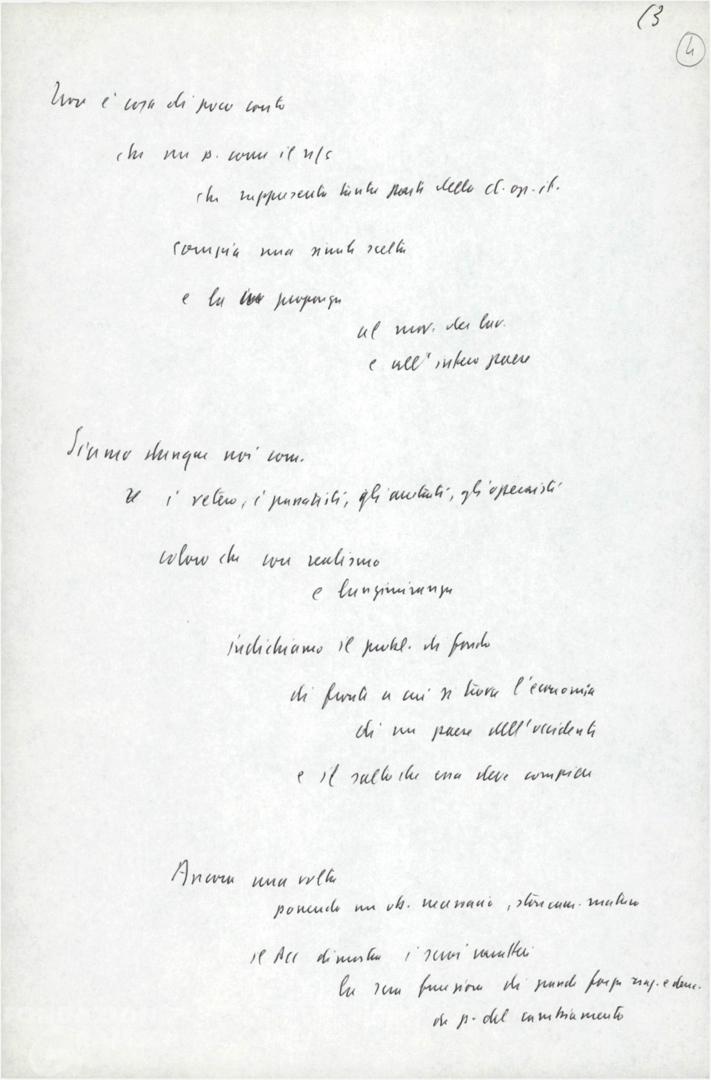 (3
4
Non è cosa di poco conto
che un p. come il n/s
che rappresenta tanta parte della cl. op. it.
compia una simile scelta
e la proponga
al mov. dei lav.
e all'intero paese
Siamo dunque noi com.
i vetero, i panatisti, gli arretrati, gli operaisti
coloro che con realismo
e lungimiranza
indichiamo il probl. di fondo
di fronte a cui si trova l'economia
di un paese dell'occidente
e il salto che essa deve compiere
Ancora una volta
ponendo un ob. necessario, storicam. maturo
il dimostra i suoi caratteri
la sua funzione di grande forza naz. e dem.
di p. del cambiamento